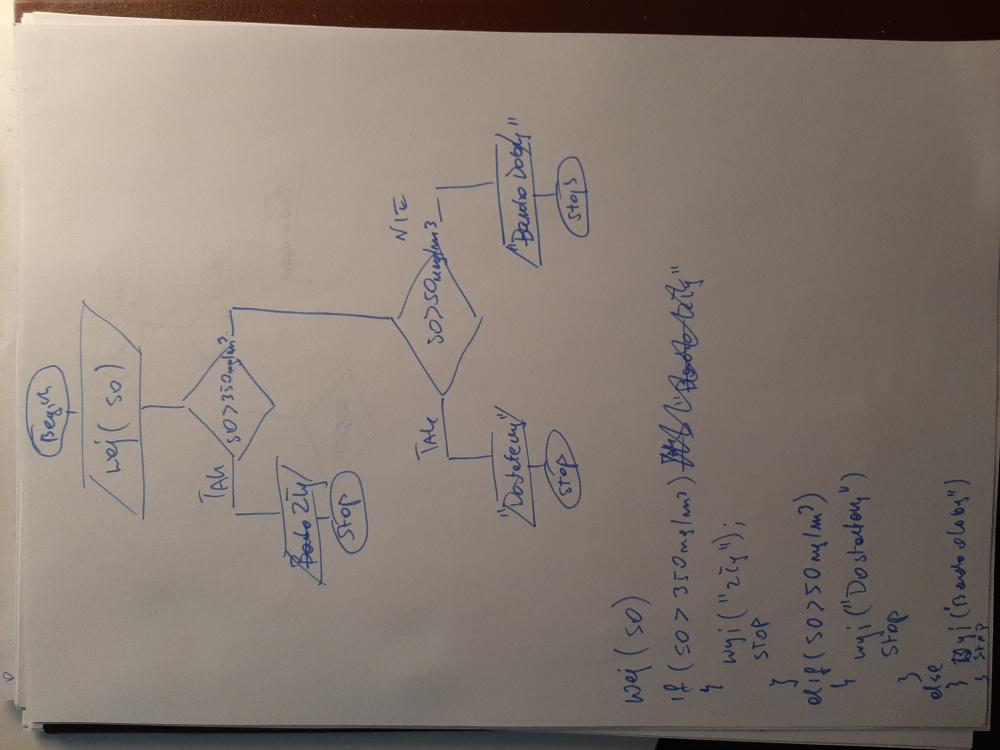 Begin
wej ( SO )
SO > 350 mg/m³
TAK
Zły
Stop
SO > 50 mg/m3
NIE
TAK
"Dostateczny"
Stop
"Bardzo Dobry"
Stop
wej ( SO )
if ( SO > 350 mg/m³ )
{
wyj ( "Zły" );
STOP
}
elif ( SO > 50 mg/m³ )
{
wyj ( "Dostateczny" )
STOP
}
else
{ wyj ( "Bardzo dobry" )
} STOP